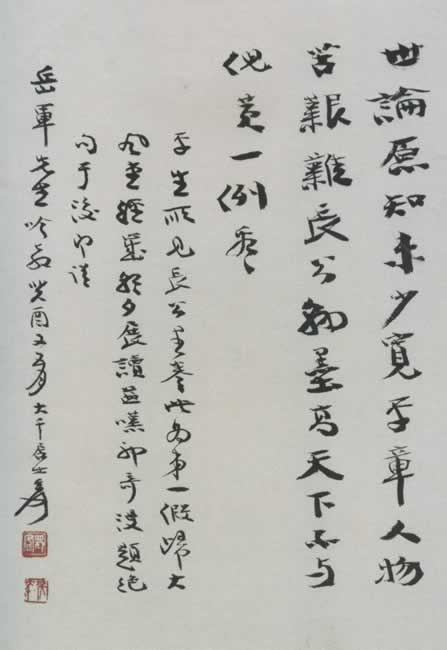 世論原知未少寬平章人物
苦艱難長公翰墨高天下不与
倪黃一例看
平生所見長公墨此為第一假歸大
風堂經歲朝夕展讀題絕
句于後即請
岳軍先生吟教癸酉又五月大千居士爰